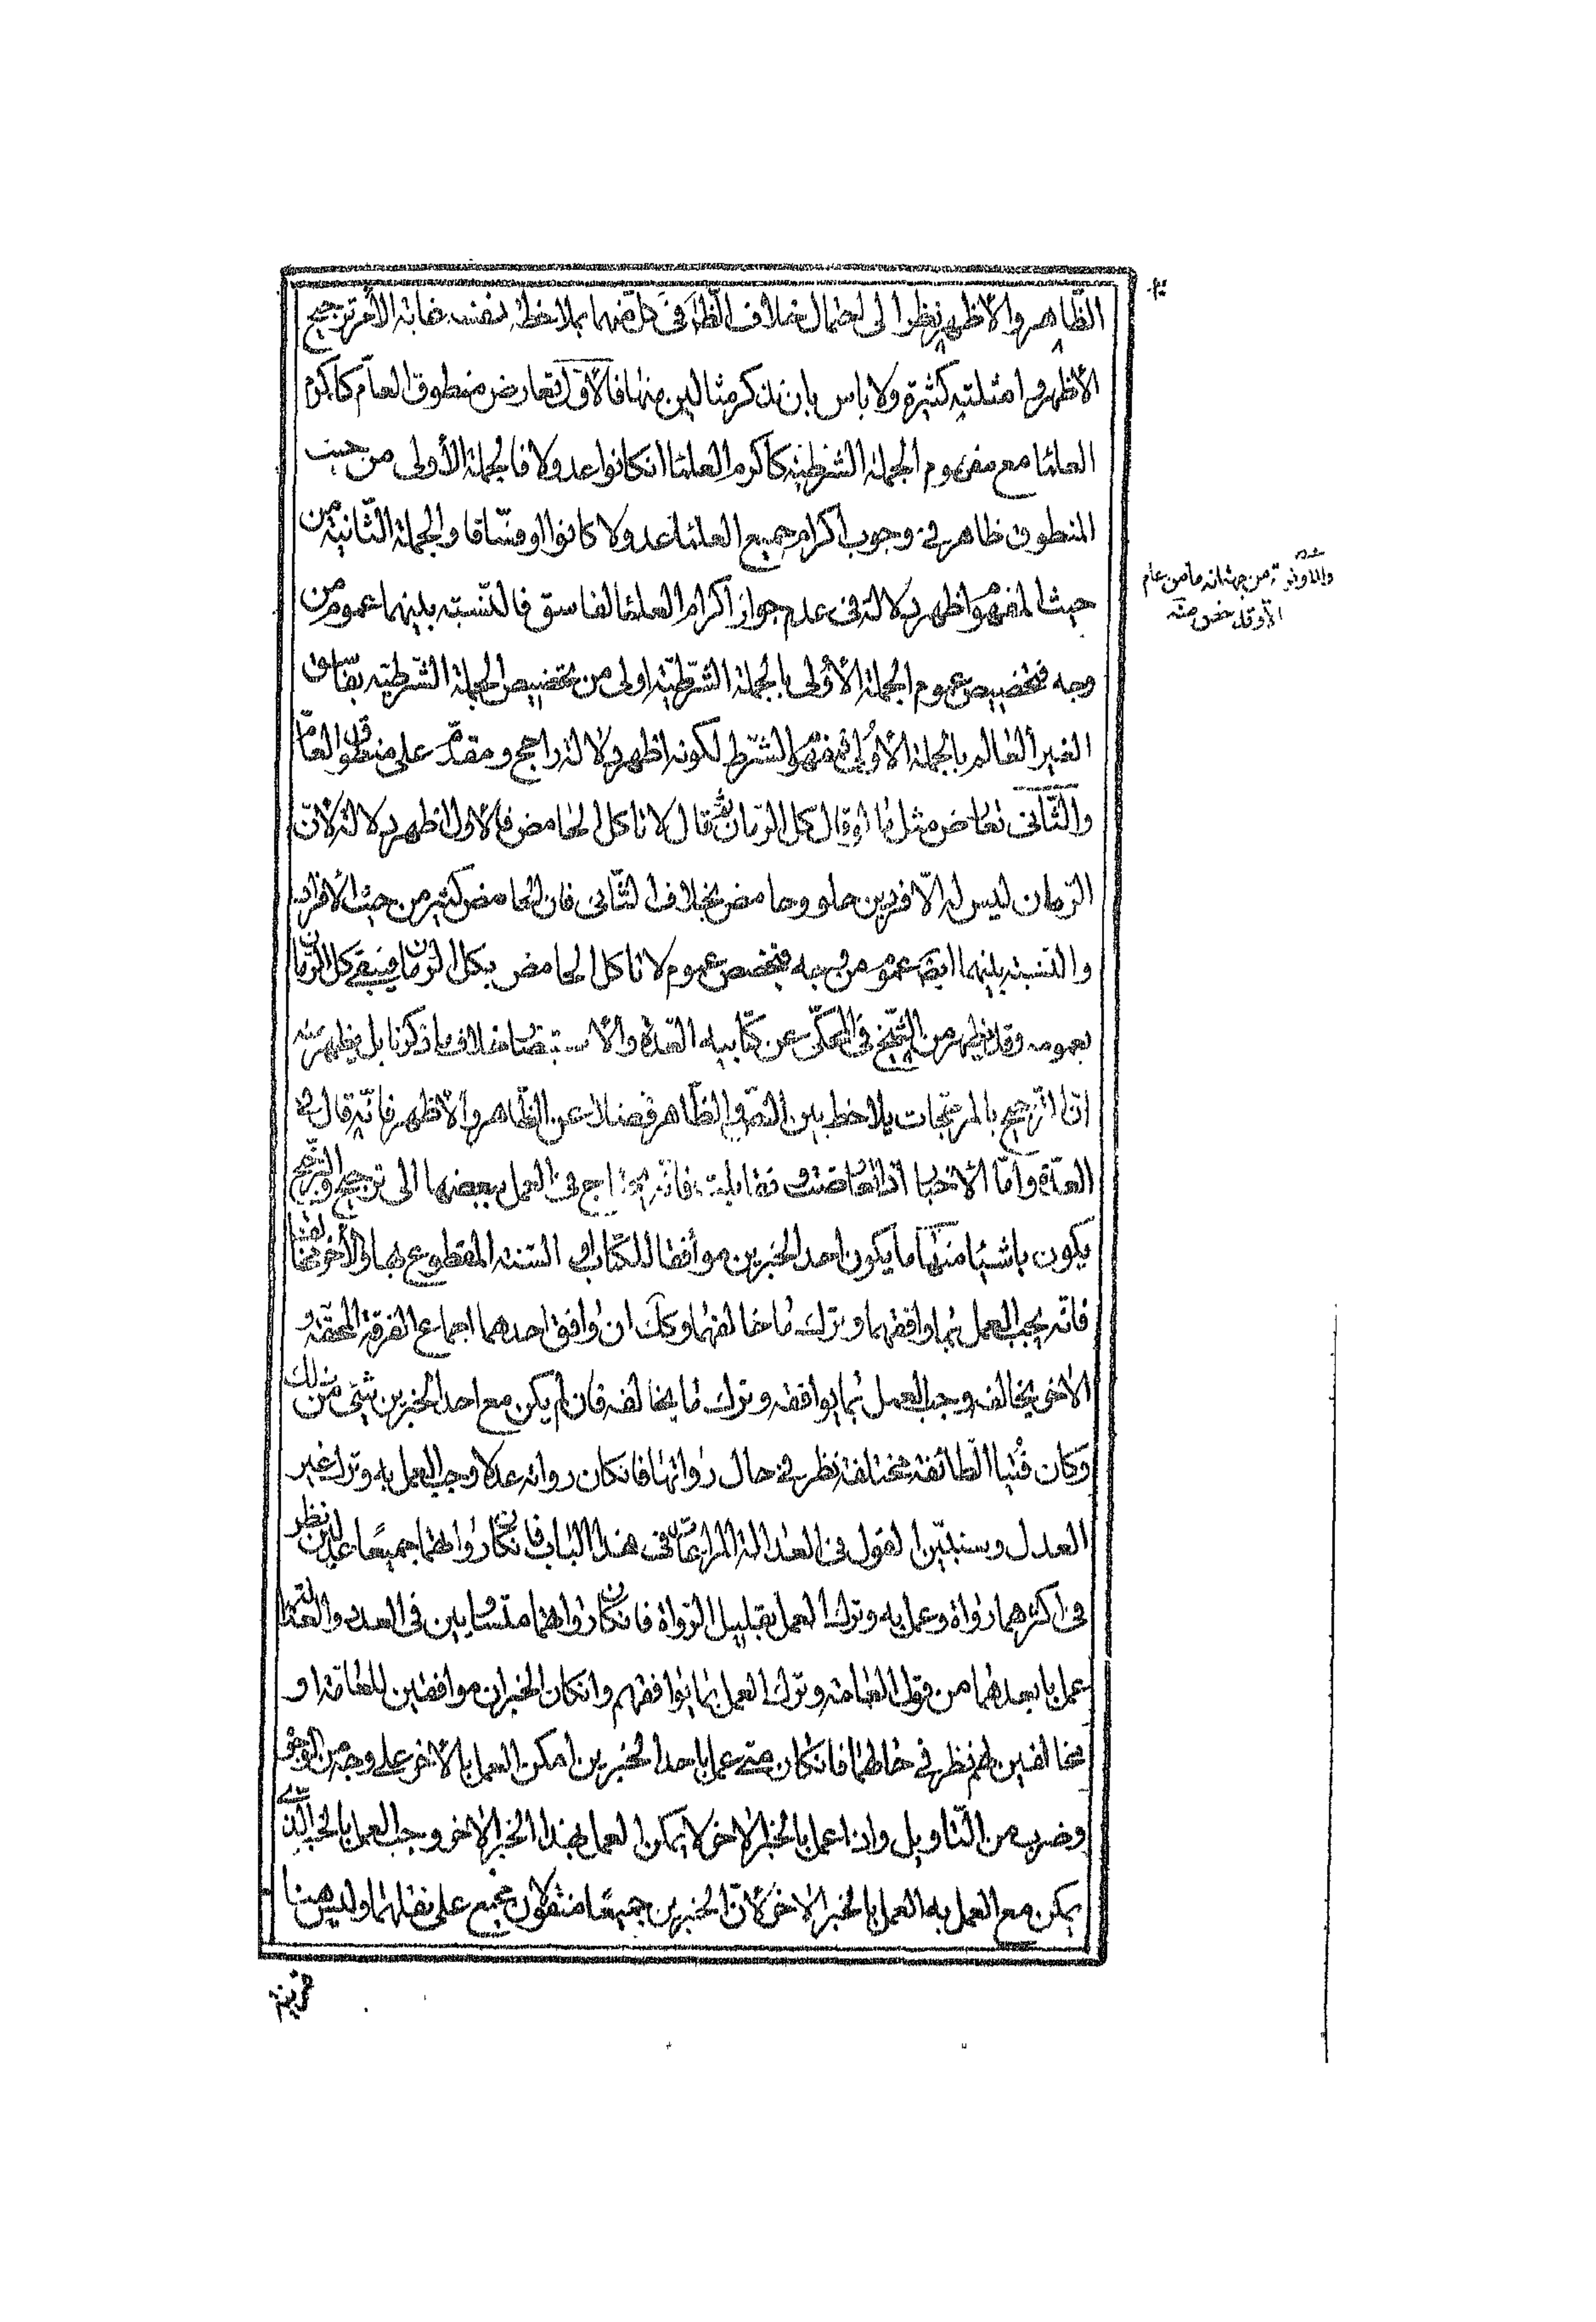 الظّاهر والأظهر نظرا الى احتمال خلاف الظّاهر فى كل منهما بملاحظة نفسه غاية الأمر ترجيح
الأظهر وامثلته كثيرة ولا باس بان نذكر مثالين منها فالأوّل تعارض منطوق العامّ كاكرم
العلماء مع مفهوم الجملة الشرطية كاكرم العلماء انكانوا عدولا فالجملة الأولى من حيث
المنطوق ظاهر فى وجوب اكرام جميع العلماء عدولا كانوا او فسّاقا والجملة الثّانية من
حيث المفهوم اظهر دلالة فى عدم جواز اكرام العلماء الفاسق فالنّسبة بينهما عموم من
وجه فتخصيص عموم الجملة الأولى بالجملة الشّرطيّة اولى من تخصيص الجملة الشّرطيّه بفسّاق
الغير العالم بالجملة الأولى فمفهوم الشّرط لكونه اظهر دلالة راجح ومقدّم على منطوق العامّ
والثّانى تعارض مثل ما لو قال كل الرّمان ثم قال لا تاكل الحامض فالاول اظهر دلالة لأنّ
الرّمان ليس له الّا فردين حلو وحامض بخلاف الثّانى فان الحامض كثير من حيث الأفراد
والنسبة بينهما ايضا عموم من وجه فيخصص عموم لا تاكل الحامض بكل الرّمان فيبقى كل الرّمان
بعمومه وقد يظهر من الشّيخ فى المحكىّ عن كتابيه العدّة والأستبصار خلاف ما ذكرنا بل يظهر منه
انّ التّرجيح بالمرجّحات يلاحظ بين النصّ والظّاهر فضلا عن الظّاهر والأظهر فانّه قال فى
العدّة وامّا الأخبار اذا تعارضت وتقابلت فانّه يحتاج فى العمل ببعضها الى ترجيح والتّرجيح
يكون باشياء منها ما يكون احد الخبرين موافقا للكتاب او السّنة المقطوع بها والأخر مخالفا
فانّه يجب العمل بما وافقهما وترك ما خالفهما وكك ان وافق احدهما اجماع الفرقة المحقّة و
الاخر يخالفه وجب العمل بما يوافقه وترك ما يخالفه فان لم يكن مع احد الخبرين شيئ من ذلك
وكان فتيا الطّائفة مختلفة نظر فى حال رواتها فانكان رواته عدلا وجب العمل به وترك غير
العدل وسنبيّن القول فى العدالة المراعاة فى هذا الباب فانكان رواتهما جميعًا عدلين نظر
فى اكثرهما رواة وعمل به وترك العمل بقليل الرّواة فانكان رواتهما متساويين فى العدد والعدالة
عمل بابعدهما من قول العامّة وترك العمل بما يوافقهم وانكان الخبران موافقين للعامّة او
مخالفين لهم نظر فى حالهما فانكان متى عمل باحد الخبرين امكن العمل بالأخر على وجه من الوجوه
وضرب من التّاويل واذا عمل بالخبر الاخر لا يمكن العمل بهذا الخبر الأخر وجب العمل بالخبر الّذى
يمكن مع العمل به العمل بالخبر الاخر لأنّ الخبرين جميعًا منقولان مجمع على نقلهما وليس هنا
قرينة
من جهة انه ما من عام
الّا وقد خص منه